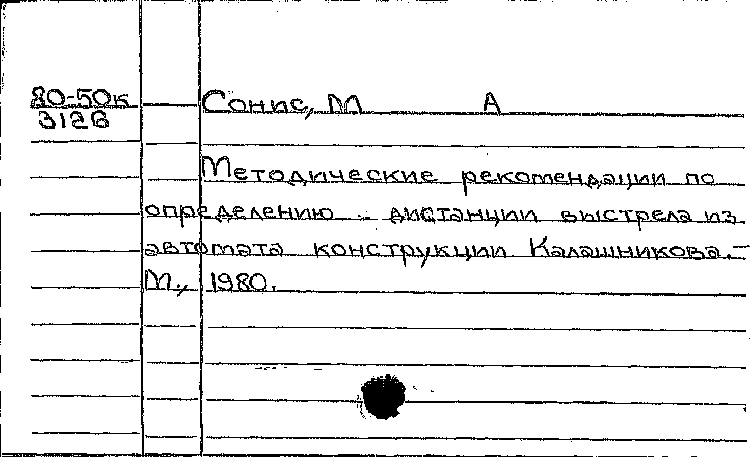 80-50к Сонис, М А
3126
Методические рекомендации по
определению дистанции выстрела из
автомата конструкции Калашникова.-
М., 1980.